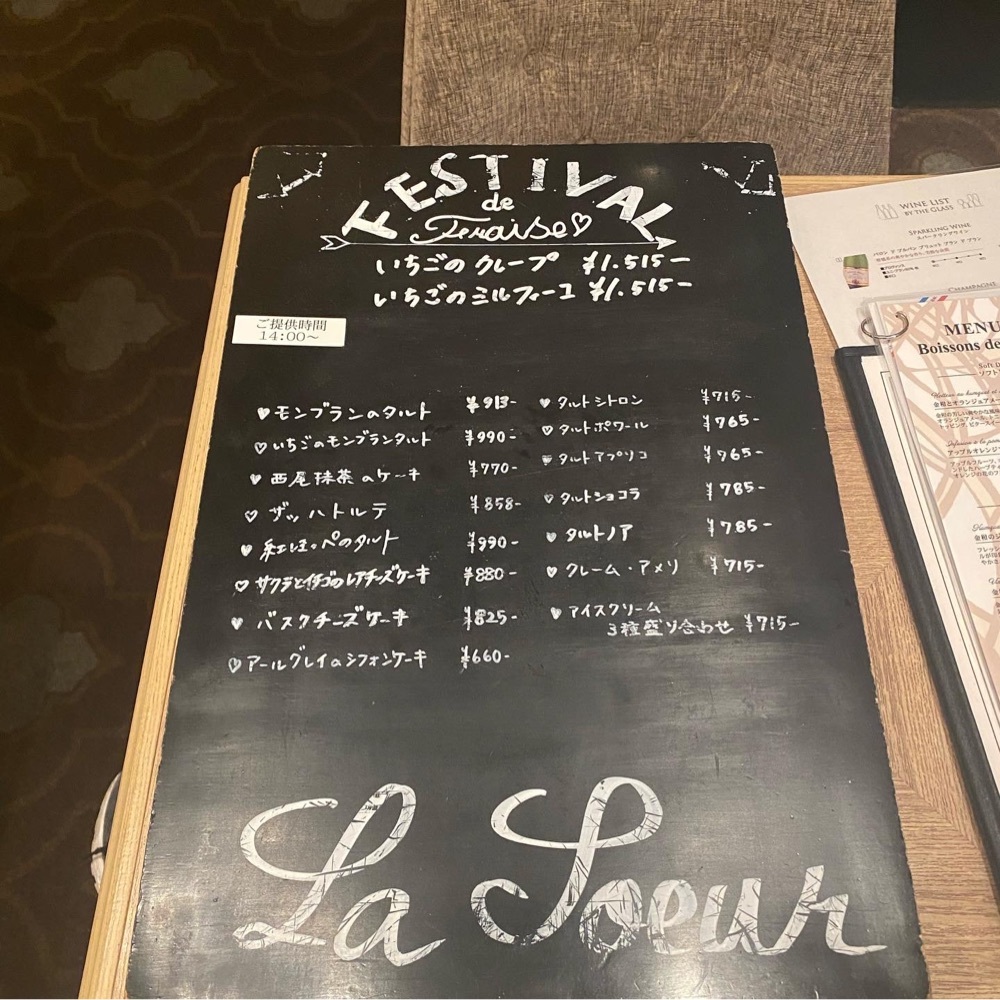 FESTIVAL
de
Fraise♡
いちごのクレープ ¥1.515-
いちごのミルフィーユ ¥1.515-
ご提供時間
14:00～
♥モンブランのタルト ¥913-
♡いちごのモンブランタルト ¥990-
♥西尾抹茶のケーキ ¥770-
♡ザッハトルテ ¥858-
♥紅ほっぺのタルト ¥990-
♡サクラとイチゴのレアチーズケーキ ¥880-
♥バスクチーズケーキ ¥825-
♡アールグレイのシフォンケーキ ¥660-
♥タルトシトロン ¥715-
♡タルトポワール ¥765-
♥タルトアプリコ ¥765-
♡タルトショコラ ¥785-
♥タルトノア ¥785-
♥クレーム・アメリ ¥715-
♥アイスクリーム
3種盛り合わせ ¥715-
La Soeur
WINE LIST
BY THE GLASS
SPARKLING WINE
スパークリングワイン
CHAMPAGNE
MENU
Boissons de